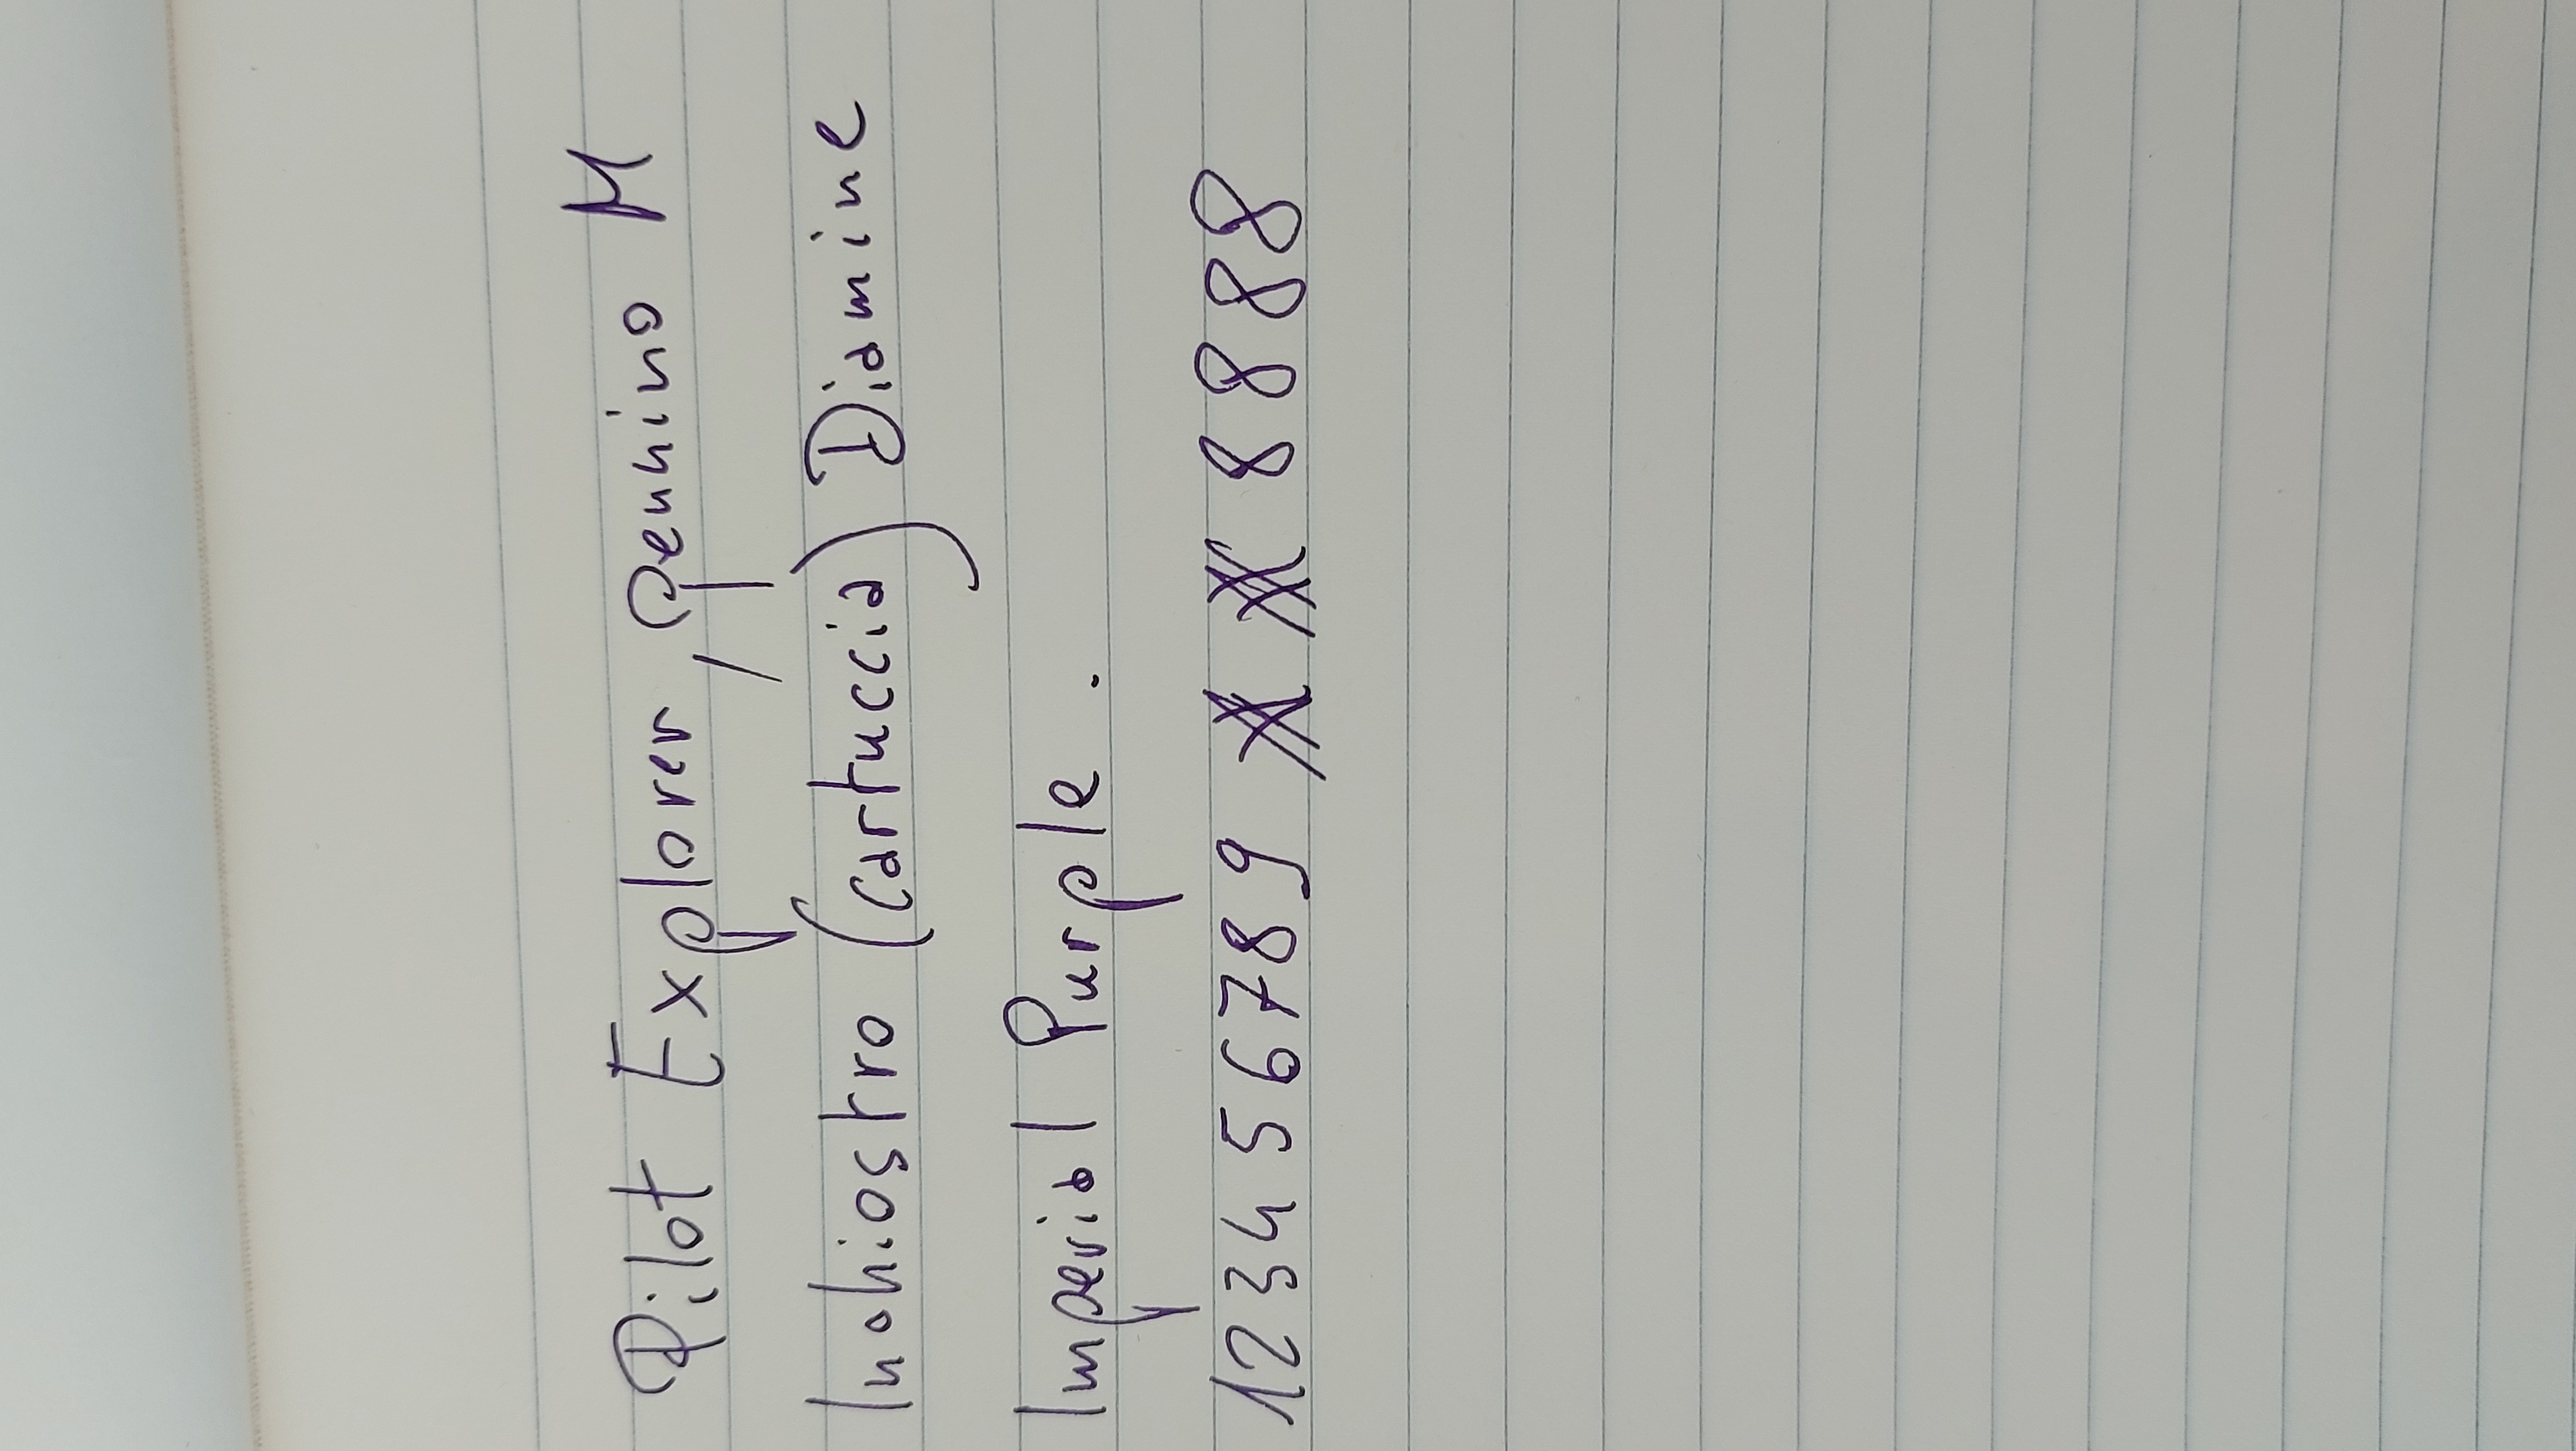 Pilot Explorer, pennino M
Inchiostro (cartuccia) Diamine
Imperial Purple.
123456789 8888